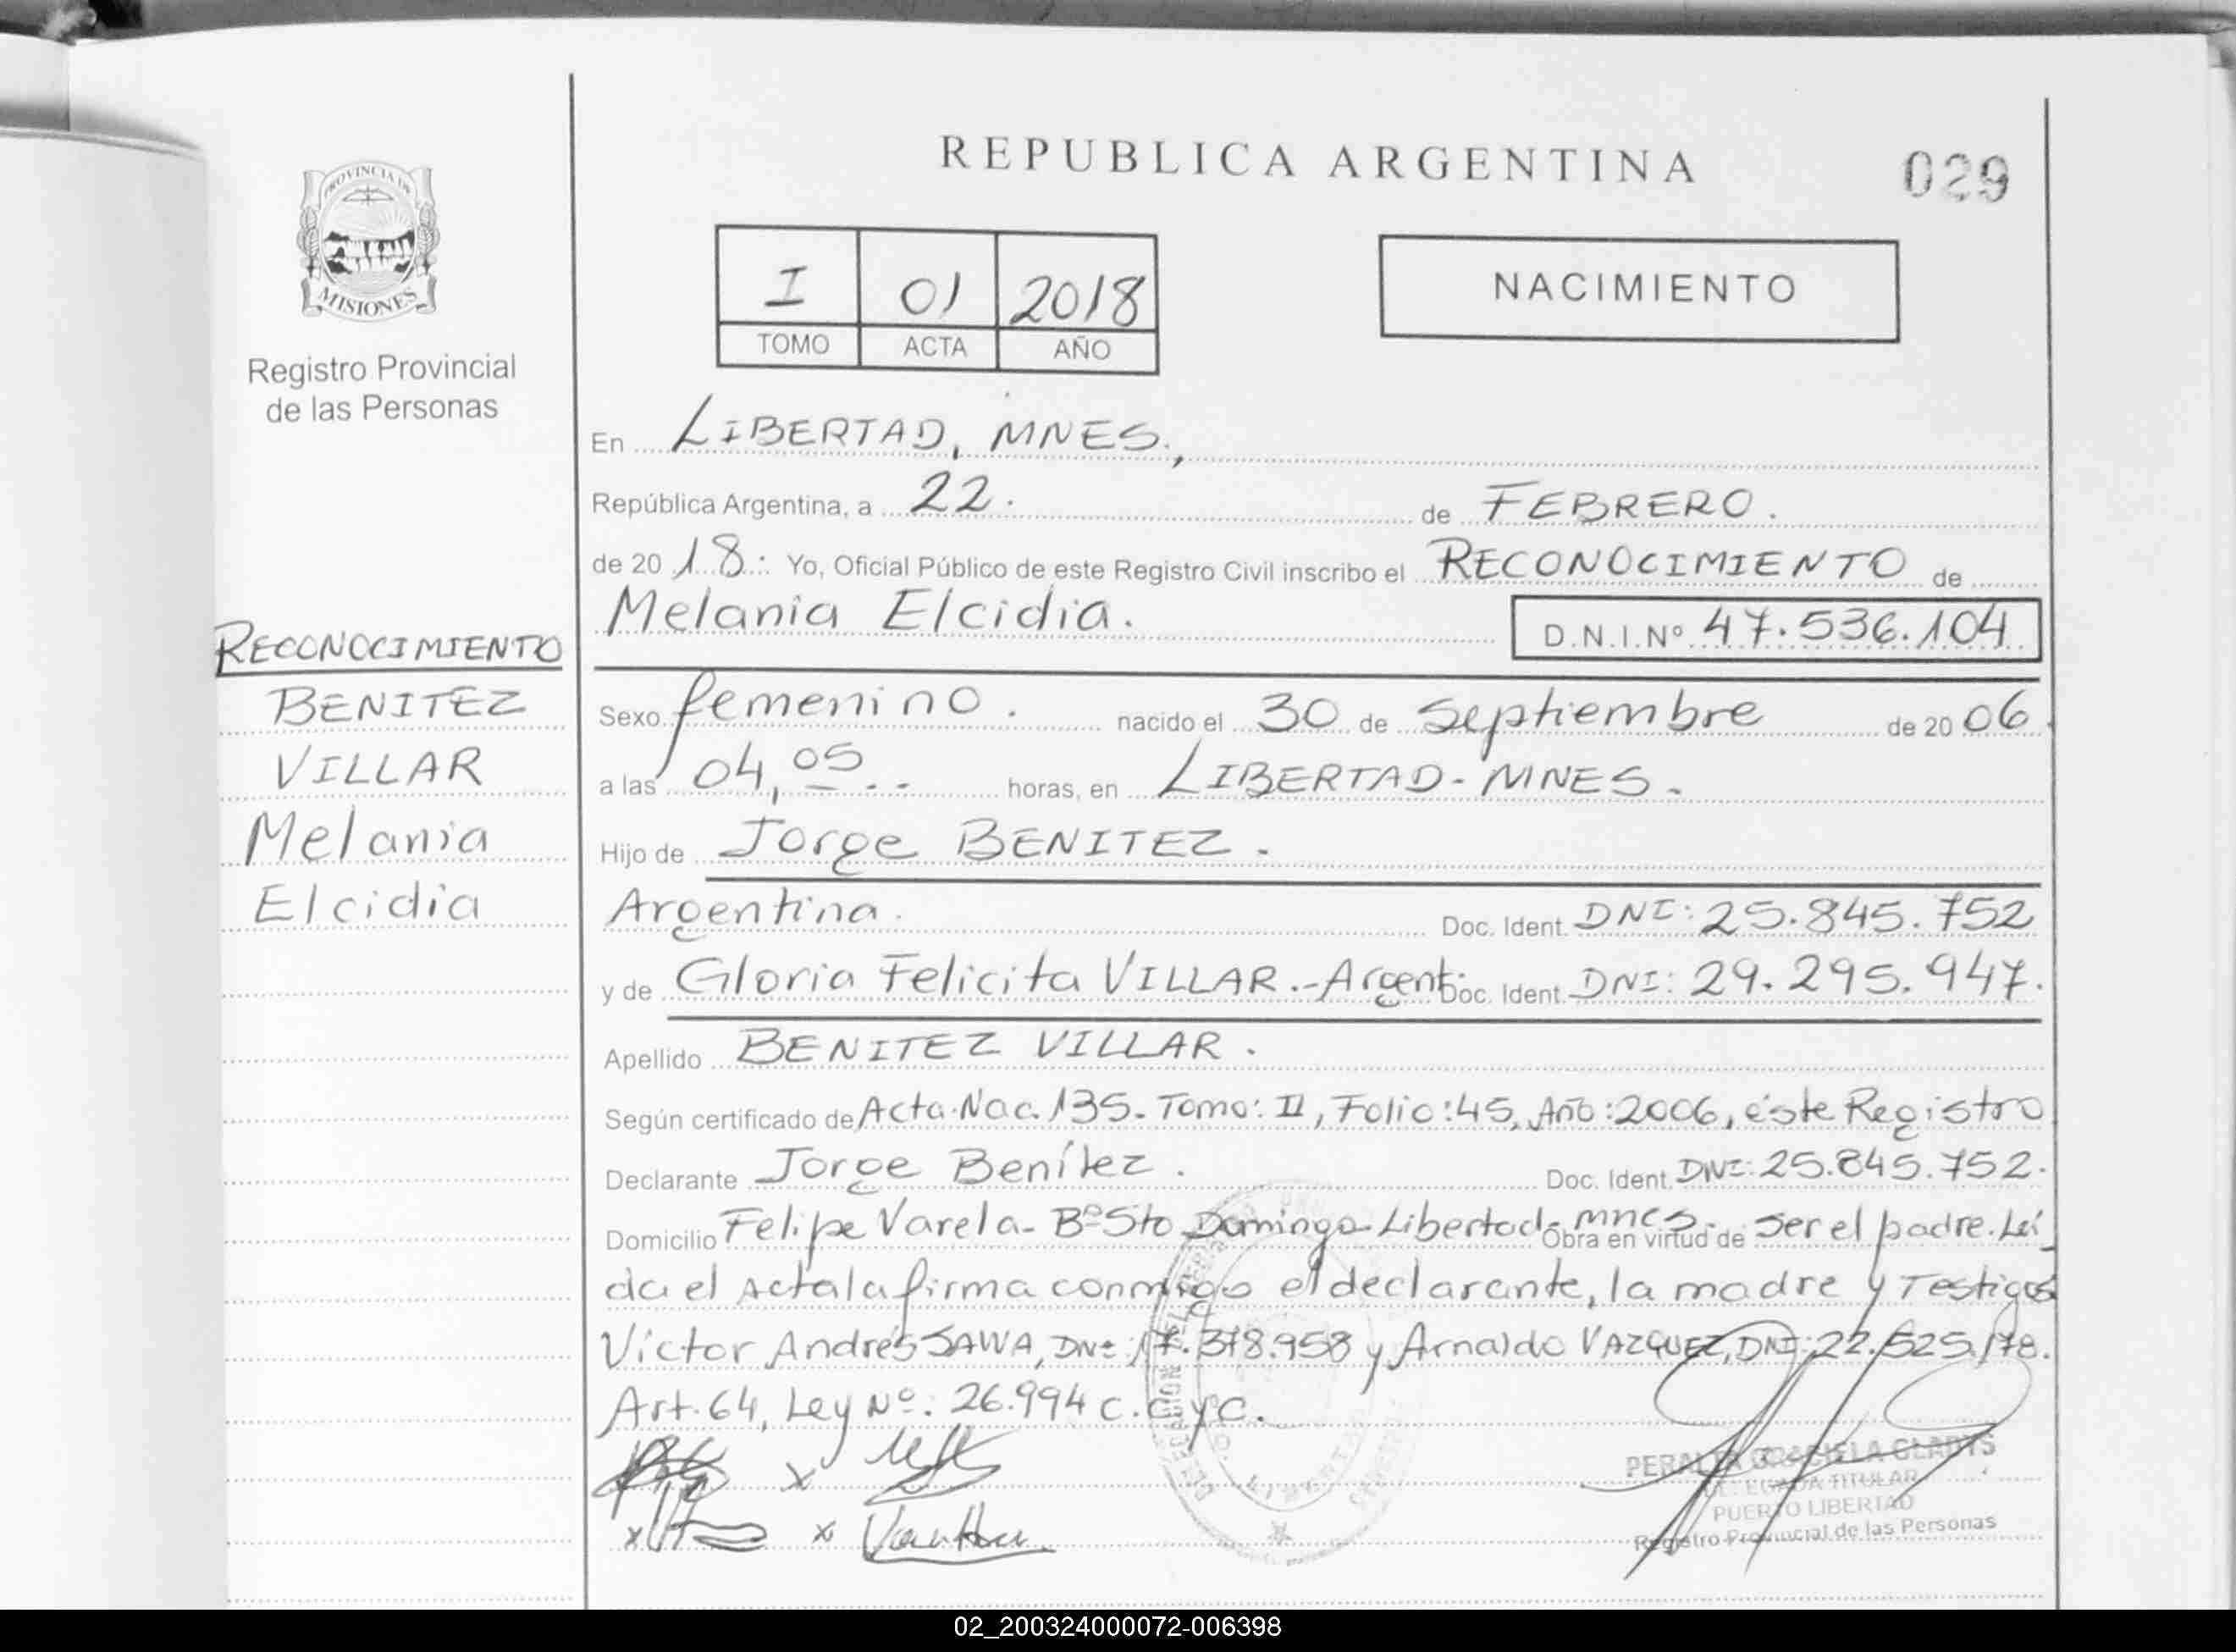 REPUBLICA ARGENTINA
029
PROVINCIA DE
MISIONES
Registro Provincial
de las Personas
I 01 2018
TOMO ACTA AÑO
NACIMIENTO
En LIBERTAD, MNES.,
República Argentina, a 22. de FEBRERO.
de 20 18.: Yo, Oficial Público de este Registro Civil inscribo el RECONOCIMIENTO de
Melania Elcidia. D.N.I.Nº 47.536.104
RECONOCIMIENTO
BENITEZ
VILLAR
Melania
Elcidia
Sexo femenino. nacido el 30 de Septiembre de 20 06.
a las 04,05.. horas, en LIBERTAD-MNES.
Hijo de Jorge BENITEZ.
Argentina. Doc. Ident. DNI: 25.845.752
y de Gloria Felicita VILLAR.-Argent. Doc. Ident. DNI: 29.295.947.
Apellido BENITEZ VILLAR.
Según certificado de Acta.Nac. 135. Tomo: II, Folio:45, Año:2006, éste Registro
Declarante Jorge Benítez. Doc. Ident. DNI: 25.845.752.
Domicilio Felipe Varela- Bº Sto Domingo-Libertad-mnes. Obra en virtud de Ser el padre. Leí
da el Acta la firma conmigo el declarante, la madre y Testigos
Víctor Andrés SAWA, DNI: 17.378.958 y Arnaldo VAZQUEZ, DNI: 22.525.178.
Art. 64, Ley Nº: 26.994 C.C.yC.
PERALTA GRACIELA GLADYS
DELEGADA TITULAR
PUERTO LIBERTAD
Registro Provincial de las Personas
02_200324000072-006398